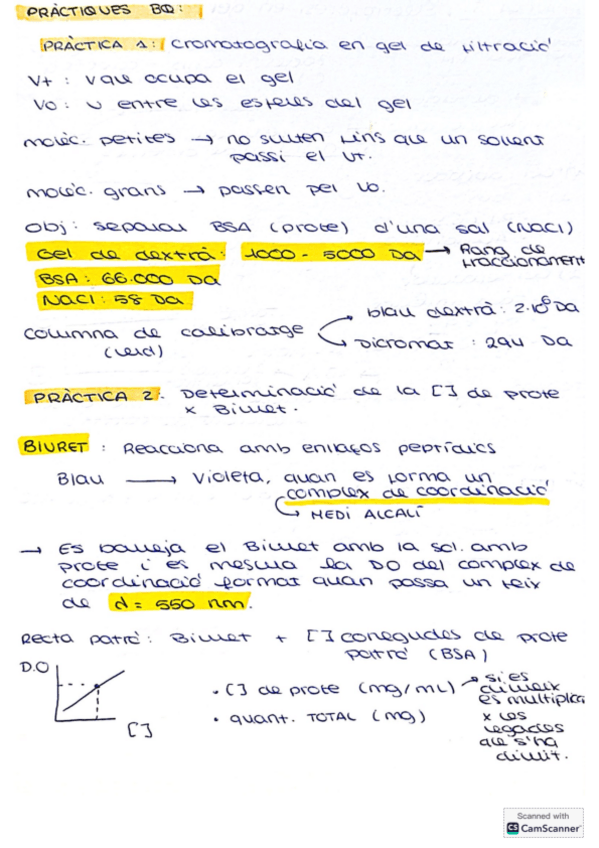 PRÀCTIQUES BQ:
PRÀCTICA 1: Cromatografia en gel de filtració
Vt : V que ocupa el gel
Vo : V entre les esferes del gel
molèc. petites → no surten fins que un solvent
passi el Vt.
molèc. grans → passen pel Vo.
Obj: separar BSA (prote) d'una sal (NaCl)
Gel de dextrà: 1000 - 5000 Da → Rang de
fraccionament
BSA: 66.000 Da
NaCl: 58 Da
blau dextrà: 2·10⁶ Da
Columna de calibratge
(Vo i d)
Dicromat : 294 Da
PRÀCTICA 2: Determinació de la [] de prote
x Biuret.
BIURET : Reacciona amb enllaços peptídics
Blau → Violeta, quan es forma un
complex de coordinació
↳ MEDI ALCALÍ
→ Es barreja el Biuret amb la sol. amb
prote i es mesura la DO del complex de
coordinació format quan passa un feix
de d = 550 nm.
Recta patró: Biuret + [] conegudes de prote
patró (BSA)
D.O
[]
• [] de prote (mg/mL) → si es
dilueix
es multiplica
x les
vegades
que s'ha
diluit.
• quant. TOTAL (mg)
Scanned with
CS CamScanner